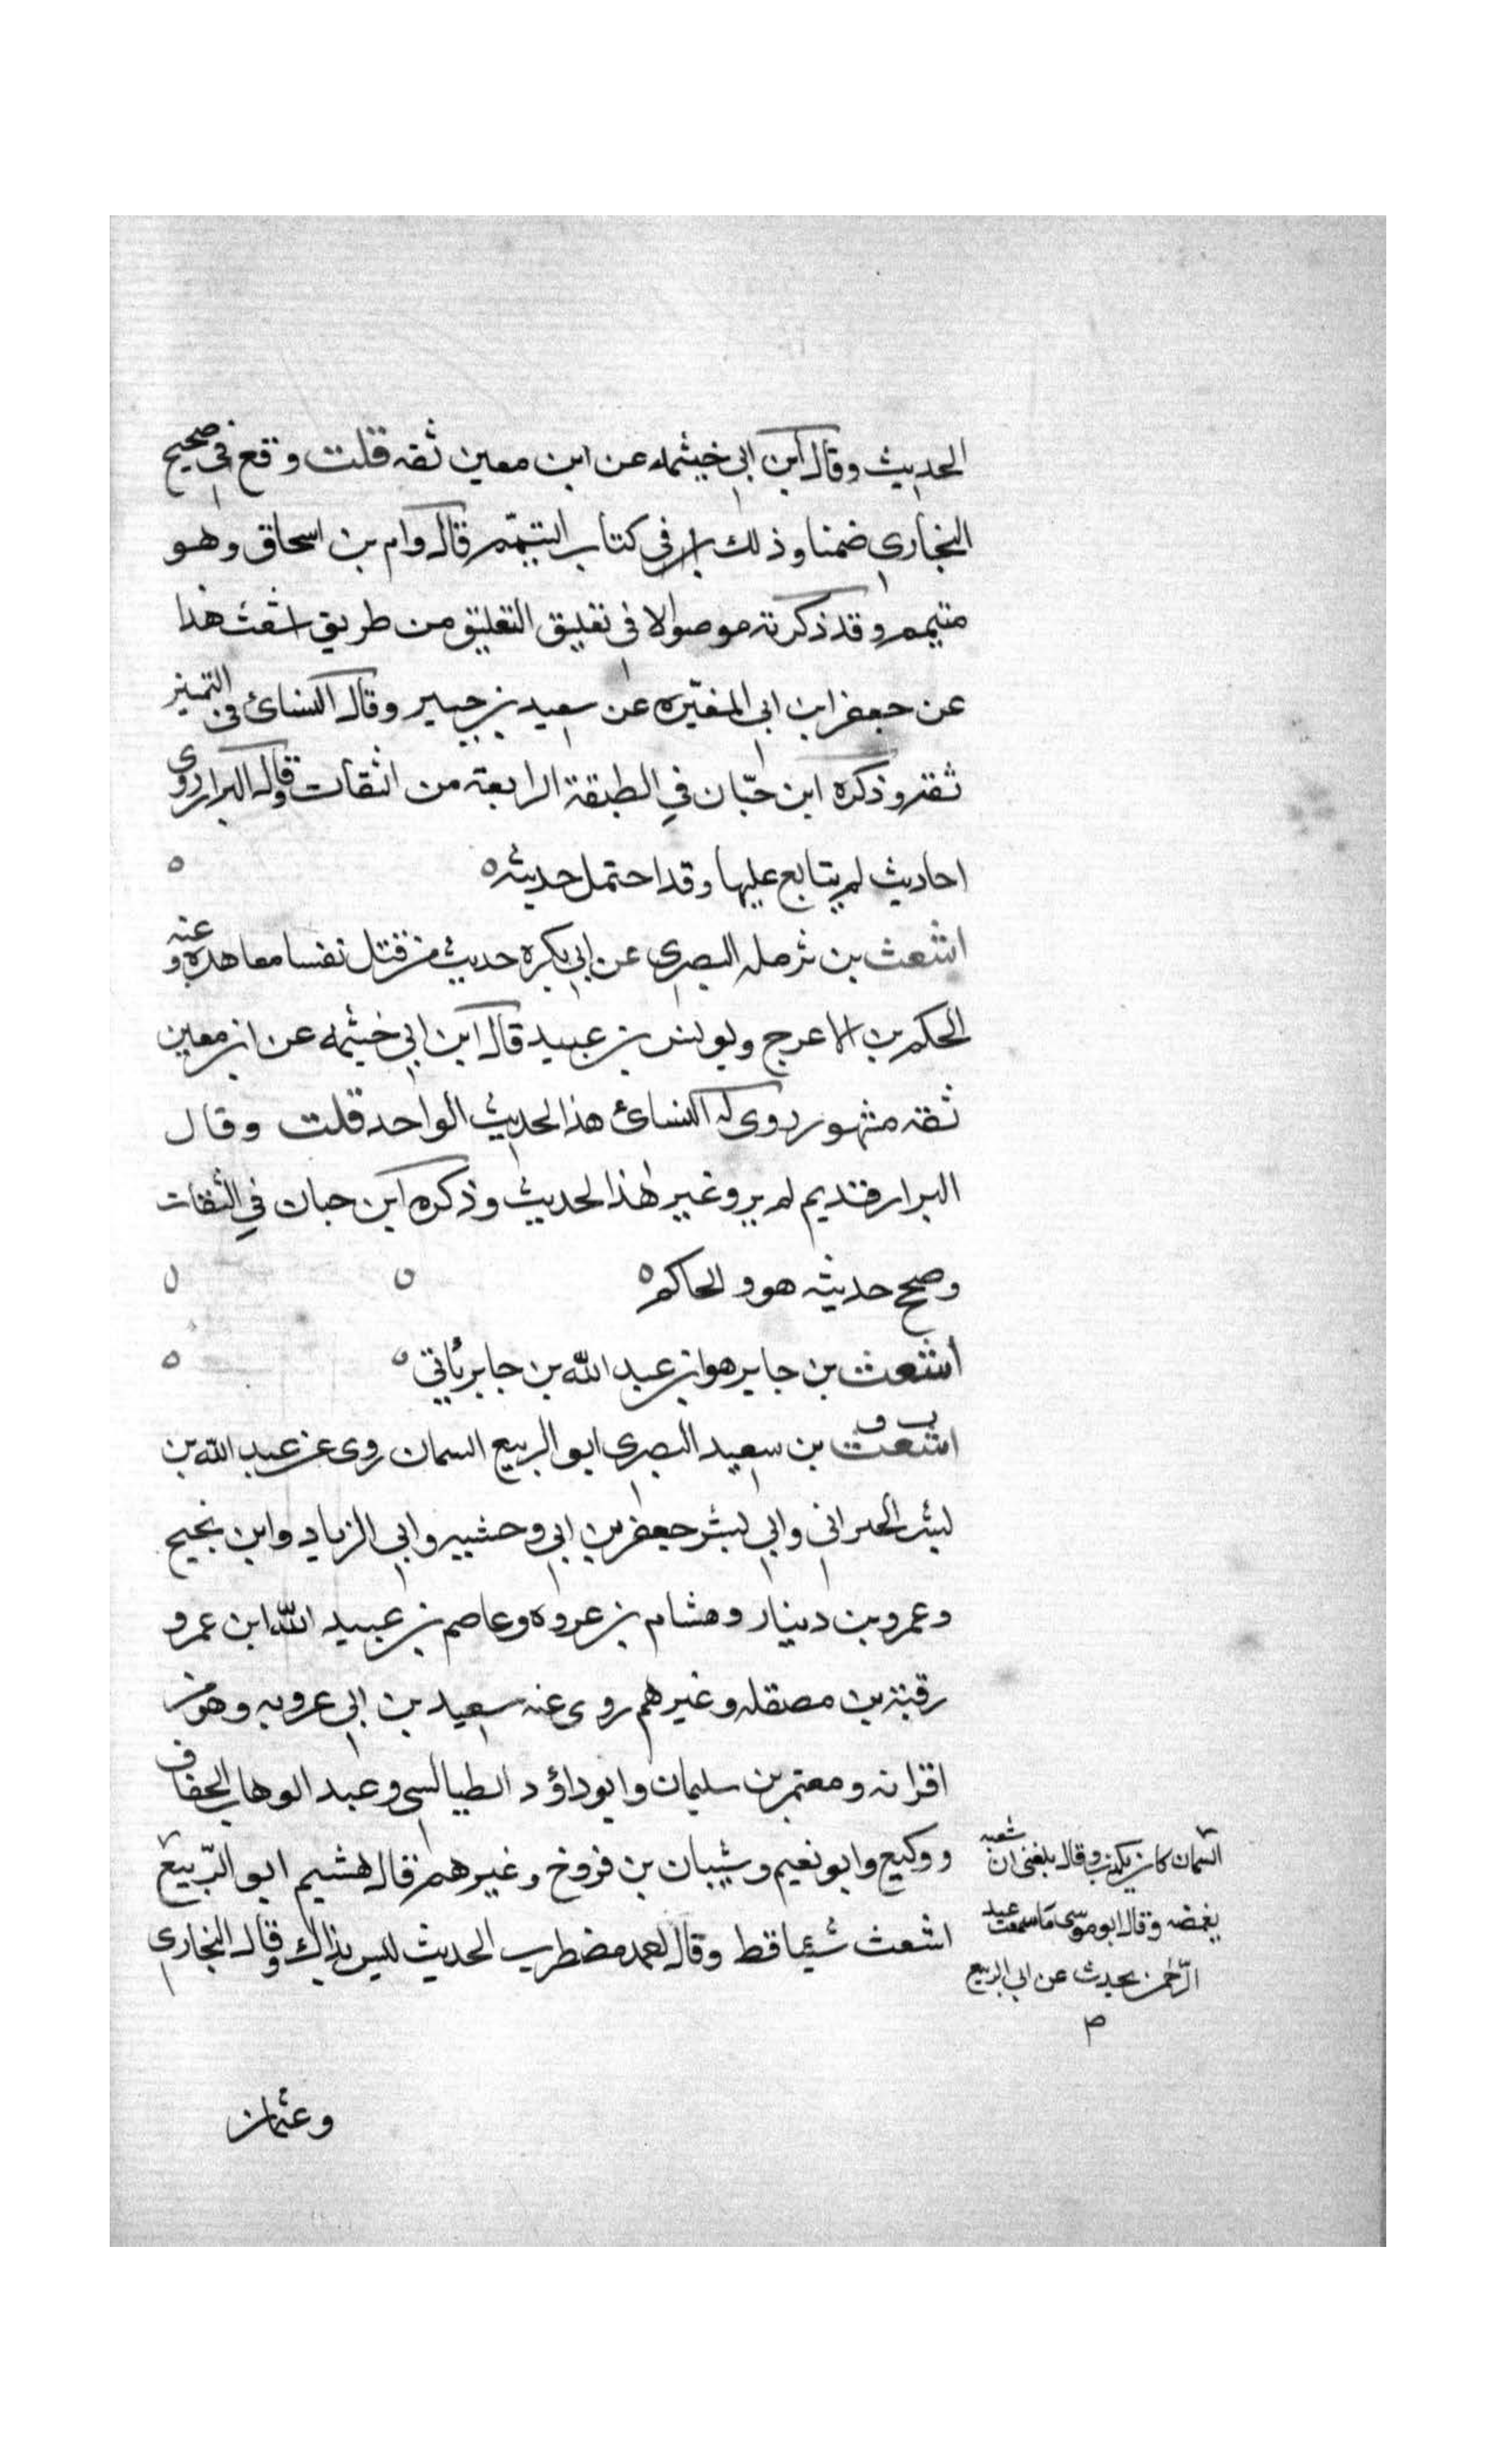 الحديث وقال ابن ابي خيثمه عن ابن معين ثقه قلت وقع في صحيح
البخاري ضمنا وذلك في كتاب التيمّم قال وام بن اسحاق وهو
متيمم وقد ذكرته موصولا في تغليق التعليق من طريق اشعث هذا
عن جعفر ابن ابي المغيّره عن سعيد بن جبير وقال النسائ في التميز
ثقة وذكره ابن حبّان في الطبقة الرابعة من الثقات وقال البزار روى
احاديث لم يتابع عليها وقد احتمل حديثه ه ه
اشعث بن ثرمله البصري عن ابي بكره حديث من قتل نفسا معاهده وعنه
الحكم بن الاعرج ويونس بن عبيد قال ابن ابي خيثمه عن ابن معين
ثقه مشهور روى له النسائ هذا الحديث الواحد قلت وقال
البرار قديم لم يرو غير هذا الحديث وذكره ابن حبان في الثقات
وصحح حديثه هو والحاكم ه ه ه
اشعث بن جابر هو ابن عبد الله بن جابر يأتي ه ه
ت ق
اشعث بن سعيد البصري ابو الربيع السمان روى عن عبد الله بن
بشر الحبراني وابي بشر جعفر بن ابي وحشيه وابي الزناد وابن نجيح
وعمرو بن دينار وهشام بن عروه وعاصم بن عبيد الله ابن عمرو
رقبة بن مصقله وغيرهم روى عنه سعيد بن ابي عروبه وهو من
اقرانه ومعتمر بن سليمان وابو داؤد الطيالسي وعبد الوهاب الخفاف
ووكيع وابو نعيم وشيبان بن فروخ وغيرهم قال هشيم ابو الرّبيع
السمان كان يكذب وقال بلغني ان شعبه
يغمضه وقال ابو موسى ما سمعت عبد
الرّحمن يحدث عن ابي الربيع
م
اشعث شيئا قط وقال احمد مضطرب الحديث ليس بذاك وقال البخاري
وعثمان